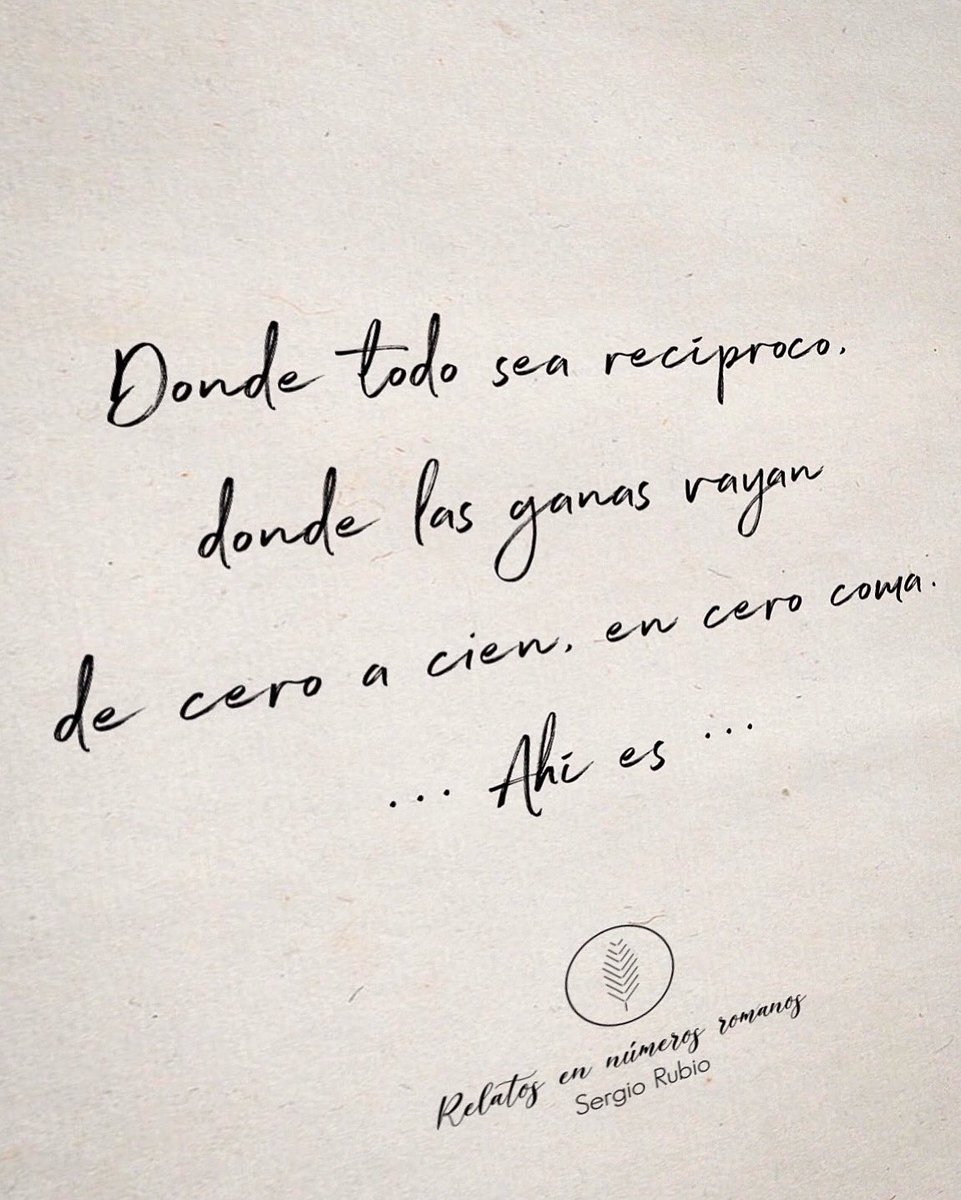 Donde todo sea recíproco,
donde las ganas vayan
de cero a cien, en cero coma.
... Ahí es ...
Relatos en números romanos
Sergio Rubio